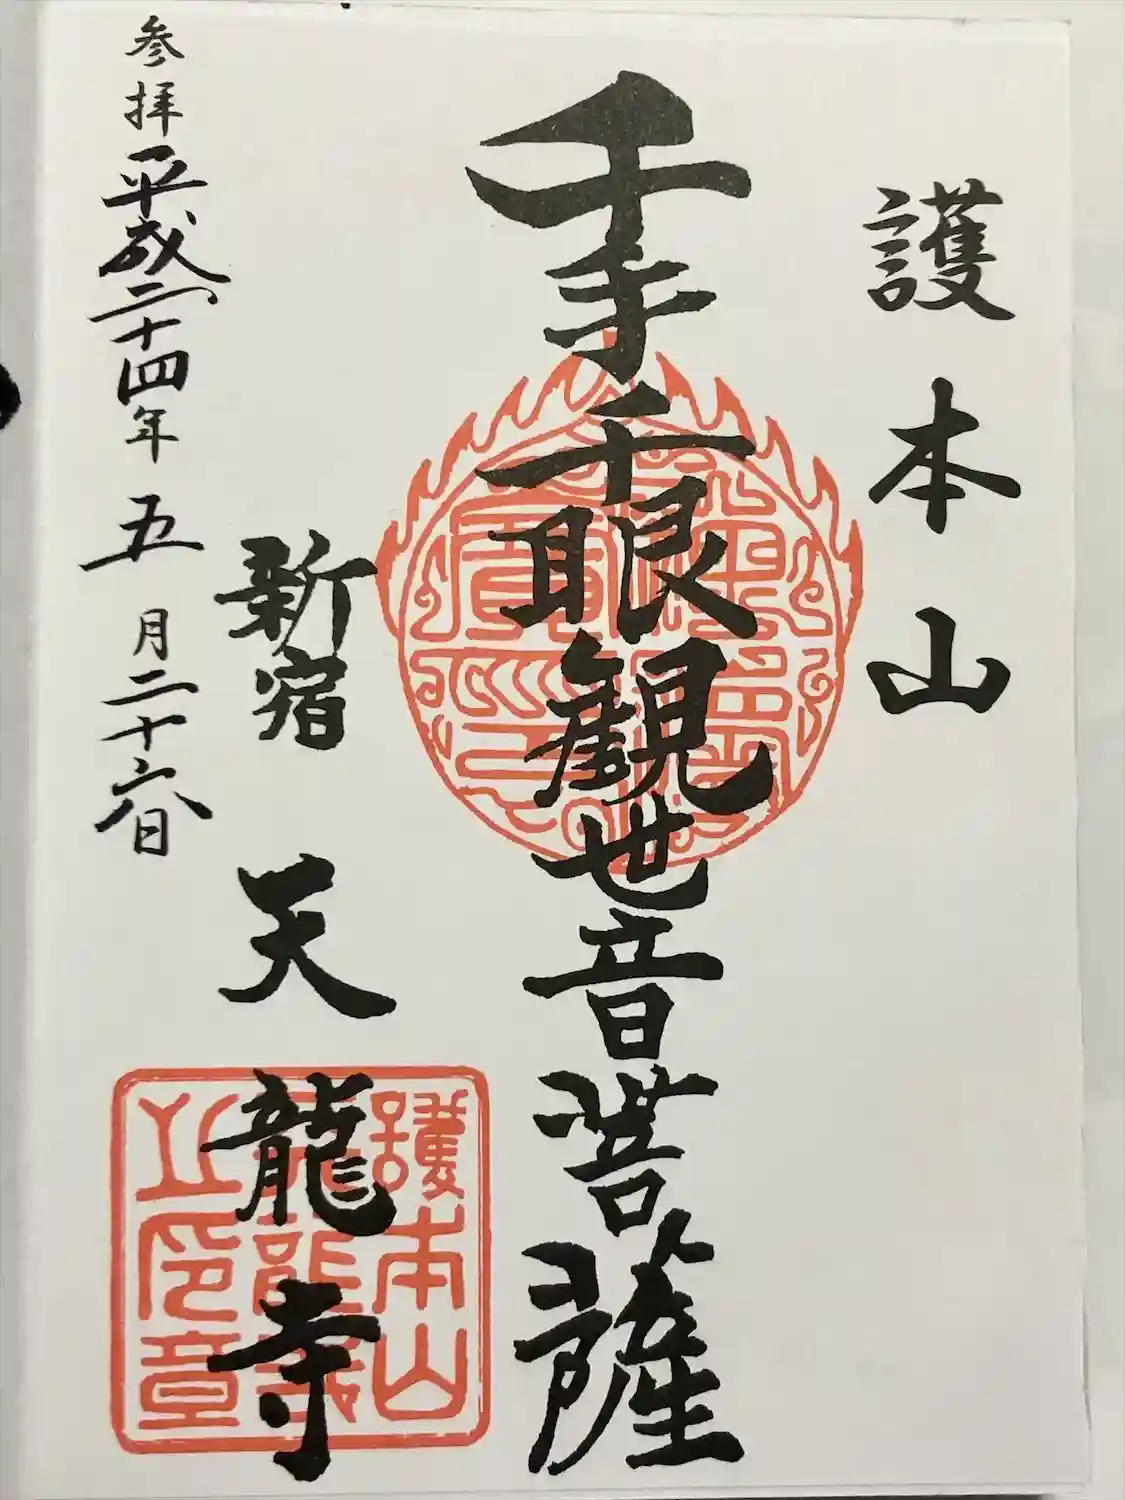 護本山
千手千眼観世音菩薩
新宿 天龍寺
参拝 平成二十四年 五月二十六日
護本山
天龍寺
之印章